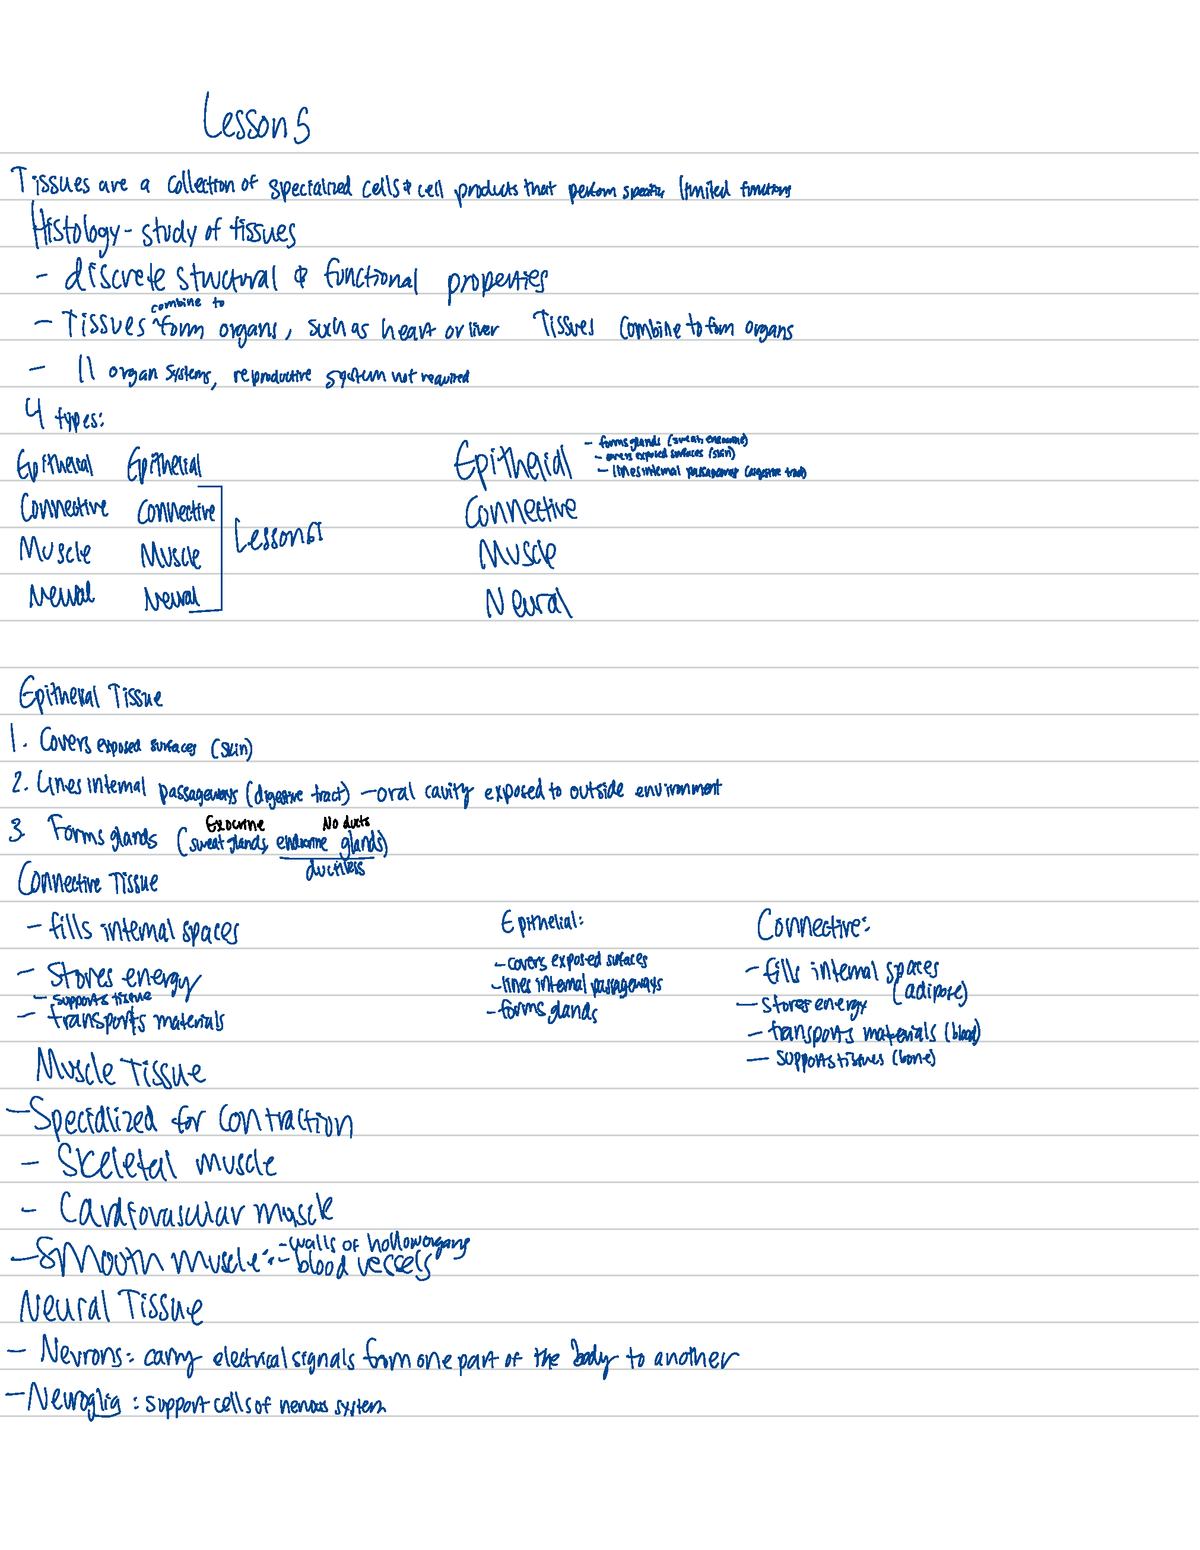 Lesson 5
Tissues are a collection of specialized cells & cell products that perform specific limited functions
Histology - study of tissues
- discrete structural & functional properties
combine to
- Tissues ^ form organs, such as heart or liver Tissues combine to form organs
- 11 organ systems, reproductive system not required
4 types:
Epithelial Epithelial Epithelial
- forms glands (sweat, endocrine)
- covers exposed surfaces (skin)
- lines internal passageways (digestive tract)
Connective Connective Connective
Lesson 6
Muscle Muscle Muscle
Neural Neural Neural
Epithelial Tissue
1. Covers exposed surfaces (skin)
2. Lines internal passageways (digestive tract) - oral cavity exposed to outside environment
Exocrine No ducts
3. Forms glands (sweat glands, endocrine glands)
ductless
Connective Tissue
- fills internal spaces
- Stores energy
- supports tissue
- transports materials
Epithelial:
- covers exposed surfaces
- lines internal passageways
- forms glands
Connective:
- fills internal spaces
- stores energy (adipose)
- transports materials (blood)
- supports tissues (bone)
Muscle Tissue
- Specialized for contraction
- Skeletal muscle
- Cardiovascular muscle
- Smooth muscle: - walls of hollow organs
- blood vessels
Neural Tissue
- Neurons: carry electrical signals from one part of the body to another
- Neuroglia: support cells of nervous system